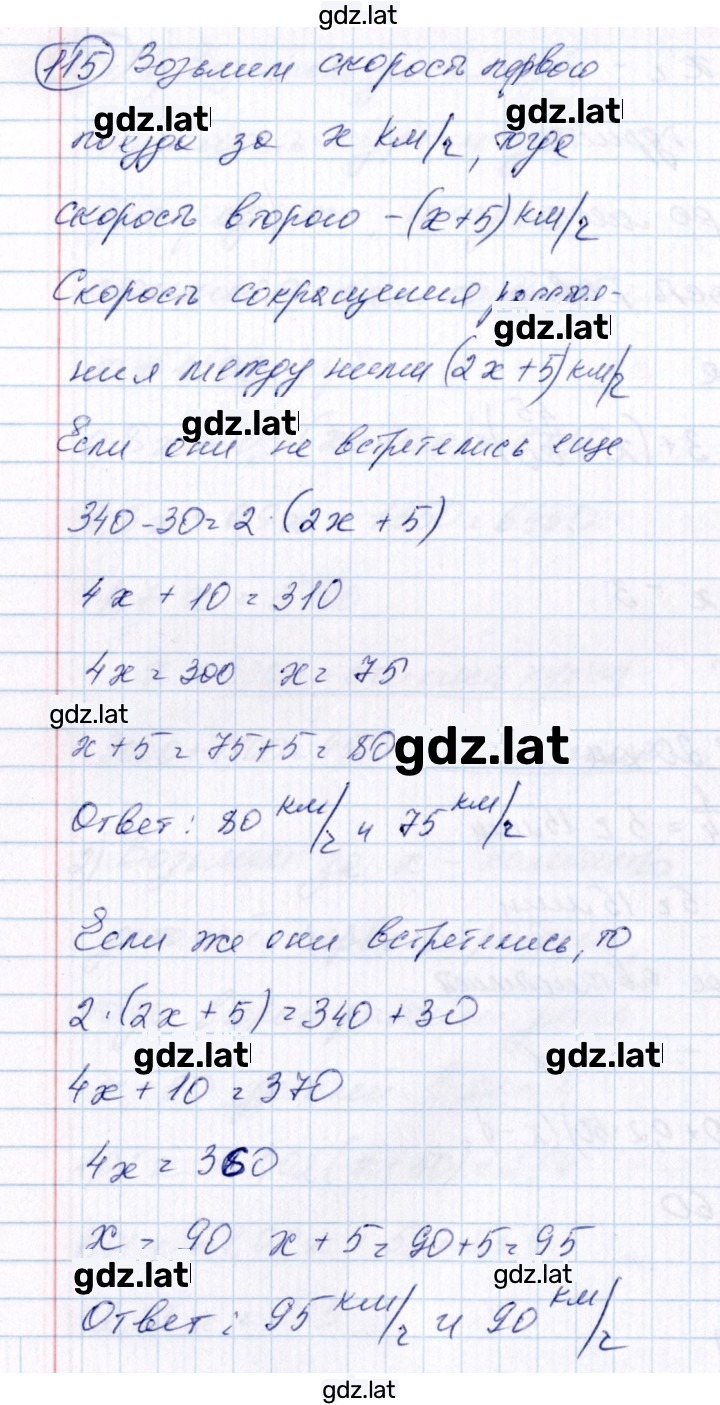 gdz.lat
115 Возьмем скорость первого
gdz.lat gdz.lat
поезда за x км/ч, тогда
скорость второго - (x+5) км/ч
Скорость сокращения расстоя-
gdz.lat
ния между ними (2x+5) км/ч
gdz.lat
Если они не встретились еще
340-30=2·(2x+5)
4x+10=310
4x=300 x=75
gdz.lat
x+5=75+5=80
gdz.lat
Ответ: 80 км/ч и 75 км/ч
Если же они встретились, то
2·(2x+5)=340+30
gdz.lat gdz.lat
4x+10=370
4x=360
x=90 x+5=90+5=95
gdz.lat gdz.lat
Ответ: 95 км/ч и 90 км/ч
gdz.lat